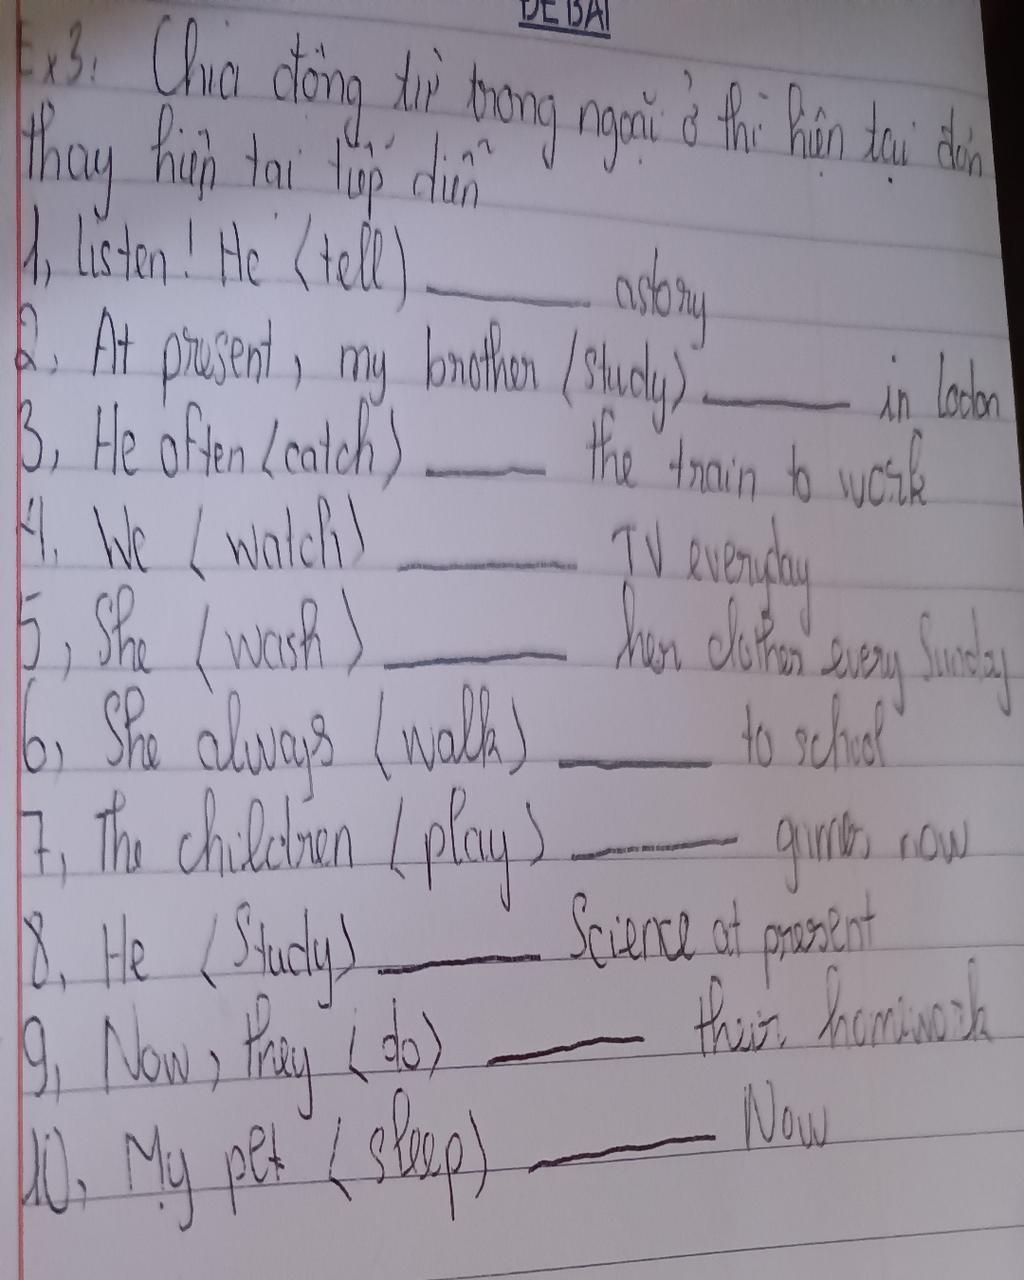 ĐỀ BÀI
Ex3: Chia động từ trong ngoặc ở thì hiện tại đơn
thay hiện tại tiếp diễn
1, listen! He (tell) ________ astory
2, At present, my brother (study) ________ in lodon
3, He often (catch) ________ the train to work
4, We (watch) ________ TV everyday
5, She (wash) ________ her clother every Sunday
6, She always (walk) ________ to school
7, The children (play) ________ games now
8, He (Study) ________ Science at present
9, Now, they (do) ________ their homework
10, My pet (sleep) ________ Now